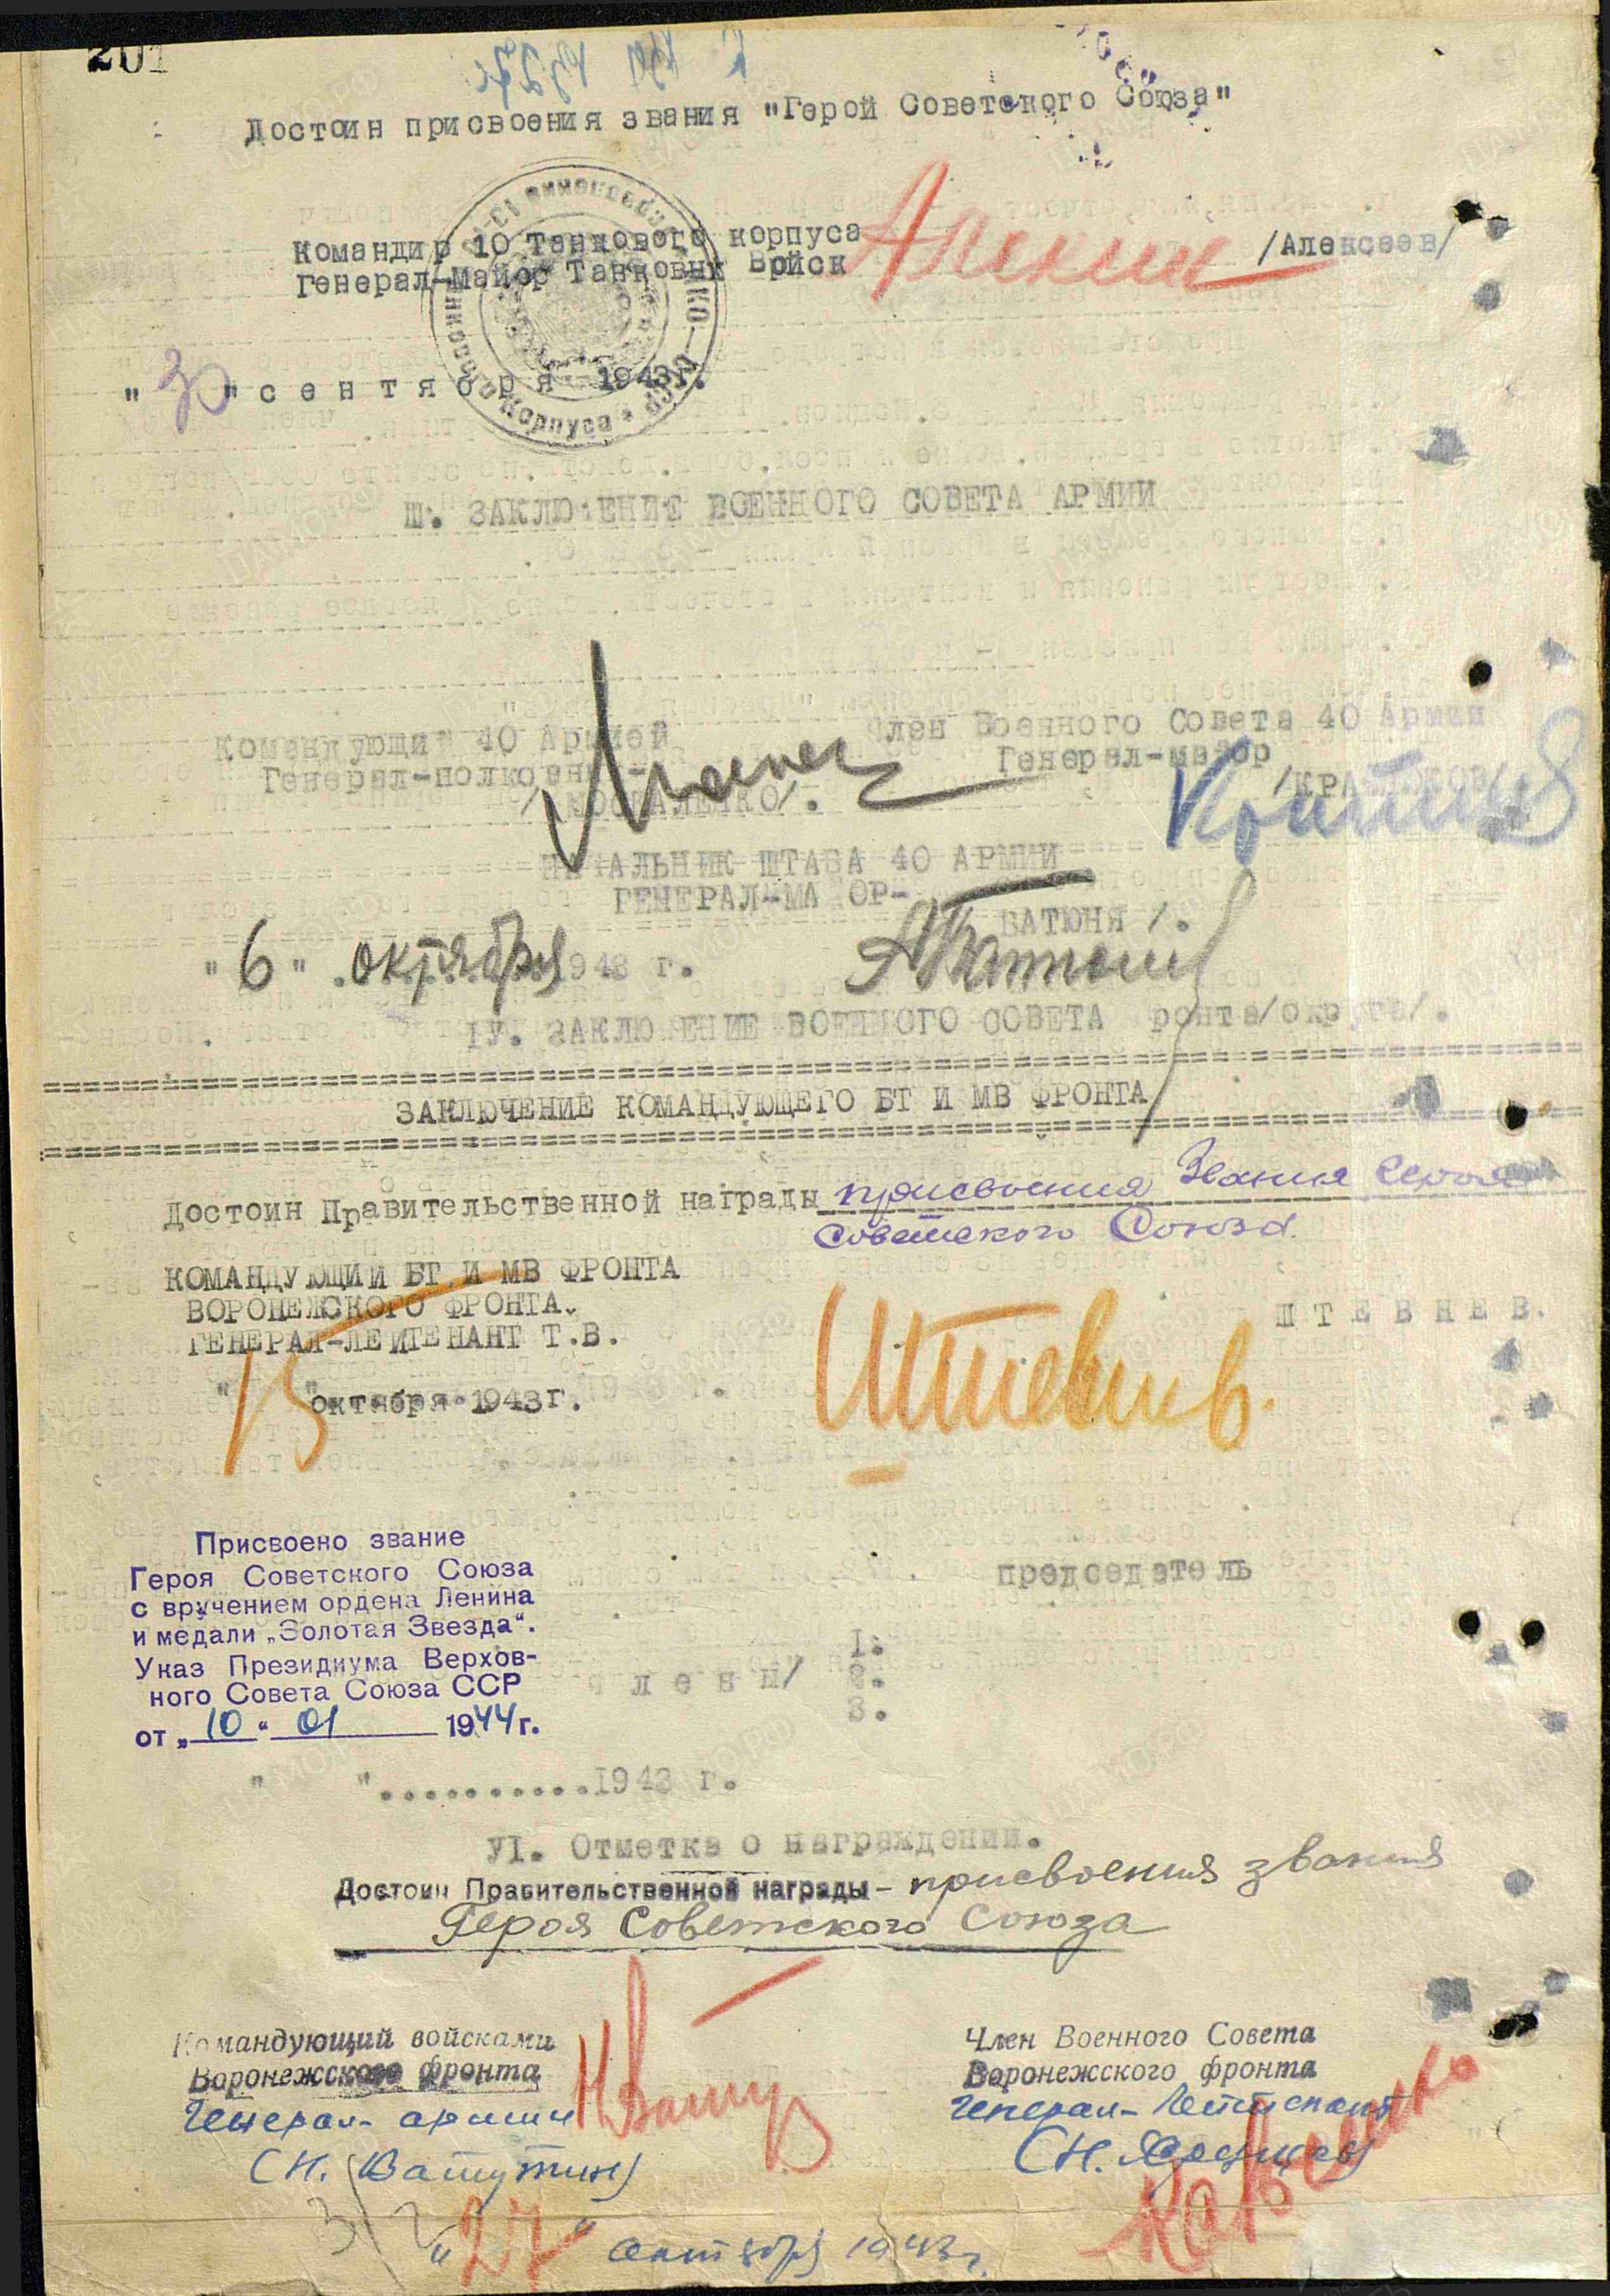 201
Достоин присвоения звания "Герой Советского Союза"
Командир 10 Танкового корпуса
Генерал-Майор Танковых Войск
/Алексеев/
"30" сентября 1943г.
Ш. ЗАКЛЮЧЕНИЕ ВОЕННОГО СОВЕТА АРМИИ
Командующий 40 Армией
Генерал-полковник-
/МОСКАЛЕНКО/.
Член Военного Совета 40 Армии
Генерал-майор
/КРАЙНЮКОВ/
НАЧАЛЬНИК ШТАБА 40 АРМИИ
ГЕНЕРАЛ-МАЙОР-
БАТЮНЯ /.
"6" октября 1943 г.
IУ. ЗАКЛЮЧЕНИЕ ВОЕННОГО СОВЕТА фронта/округа/.
ЗАКЛЮЧЕНИЕ КОМАНДУЮЩЕГО БТ И МВ ФРОНТА
Достоин Правительственной награды присвоения Звания Героя
Советского Союза.
КОМАНДУЮЩИЙ БТ И МВ ФРОНТА
ВОРОНЕЖСКОГО ФРОНТА.
ГЕНЕРАЛ-ЛЕЙТЕНАНТ Т.В.
ШТЕВНЕВ.
Штевнев.
"15" октября 1943г.
Присвоено звание
Героя Советского Союза
с вручением ордена Ленина
и медали „Золотая Звезда“.
Указ Президиума Верхов-
ного Совета Союза ССР
от „10“ 01 1944г.
председатель
члены/
1.
2.
3.
" "..........1943 г.
УI. Отметка о награждении.
Достоин Правительственной награды - присвоения звания
Героя Советского Союза
Командующий войсками
Воронежского фронта
Генерал-армии
(Н. Ватутин)
Член Военного Совета
Воронежского фронта
Генерал-Лейтенант
"27" октября 1943г.